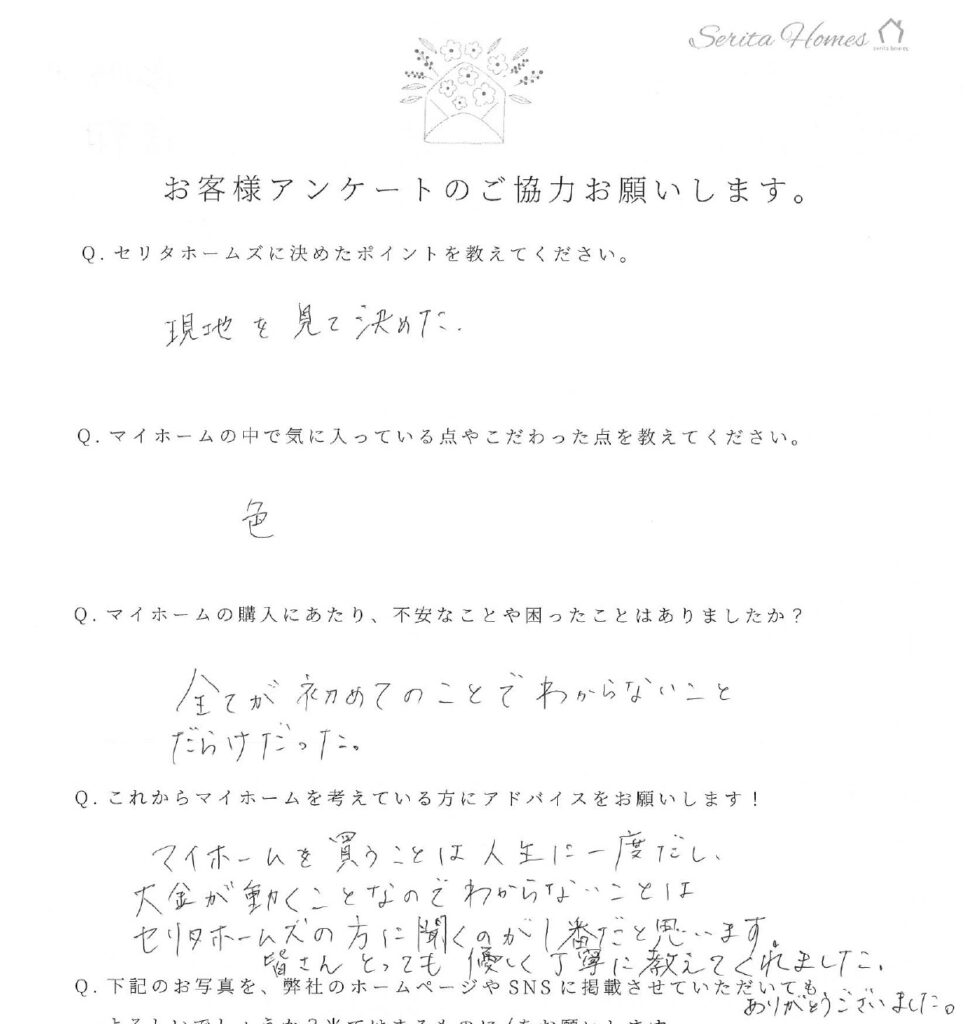 Serita Homes
serita homes
お客様アンケートのご協力お願いします。
Q. セリタホームズに決めたポイントを教えてください。
現地を見て決めた.
Q. マイホームの中で気に入っている点やこだわった点を教えてください。
色
Q. マイホームの購入にあたり、不安なことや困ったことはありましたか？
全てが初めてのことでわからないこと
だらけだった。
Q. これからマイホームを考えている方にアドバイスをお願いします！
マイホームを買うことは人生に一度だし、
大金が動くことなのでわからないことは
セリタホームズの方に聞くのが1番だと思います。
皆さんとっても優しく丁寧に教えてくれました。
ありがとうございました。
Q. 下記のお写真を、弊社のホームページやSNSに掲載させていただいても
よろしいでしょうか？当てはまるものに✓をお願いします